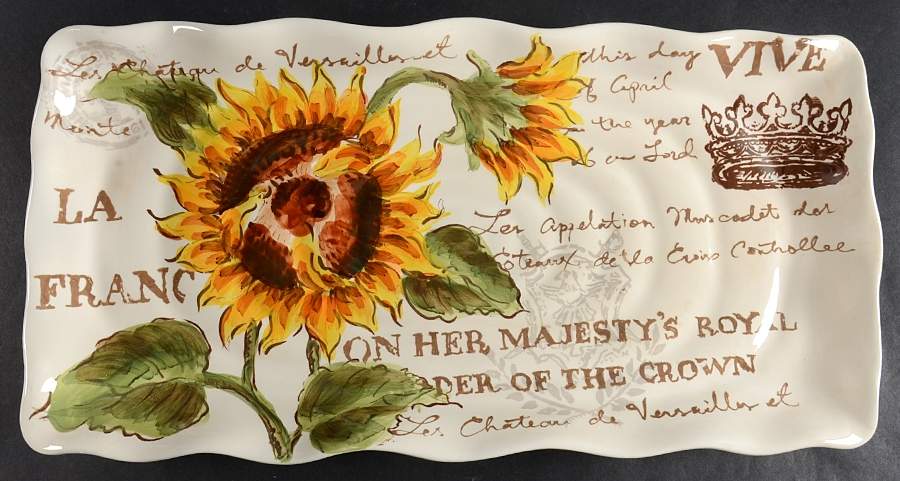 Les Chateau de Versailles et
Monte
LA
FRANC
this day
f April
the year
our Lord
VIVE
Les Appelation Muscadet des
Coteaux de la Croix Controllee
ON HER MAJESTY'S ROYAL
RDER OF THE CROWN
Les Chateau de Versailles et